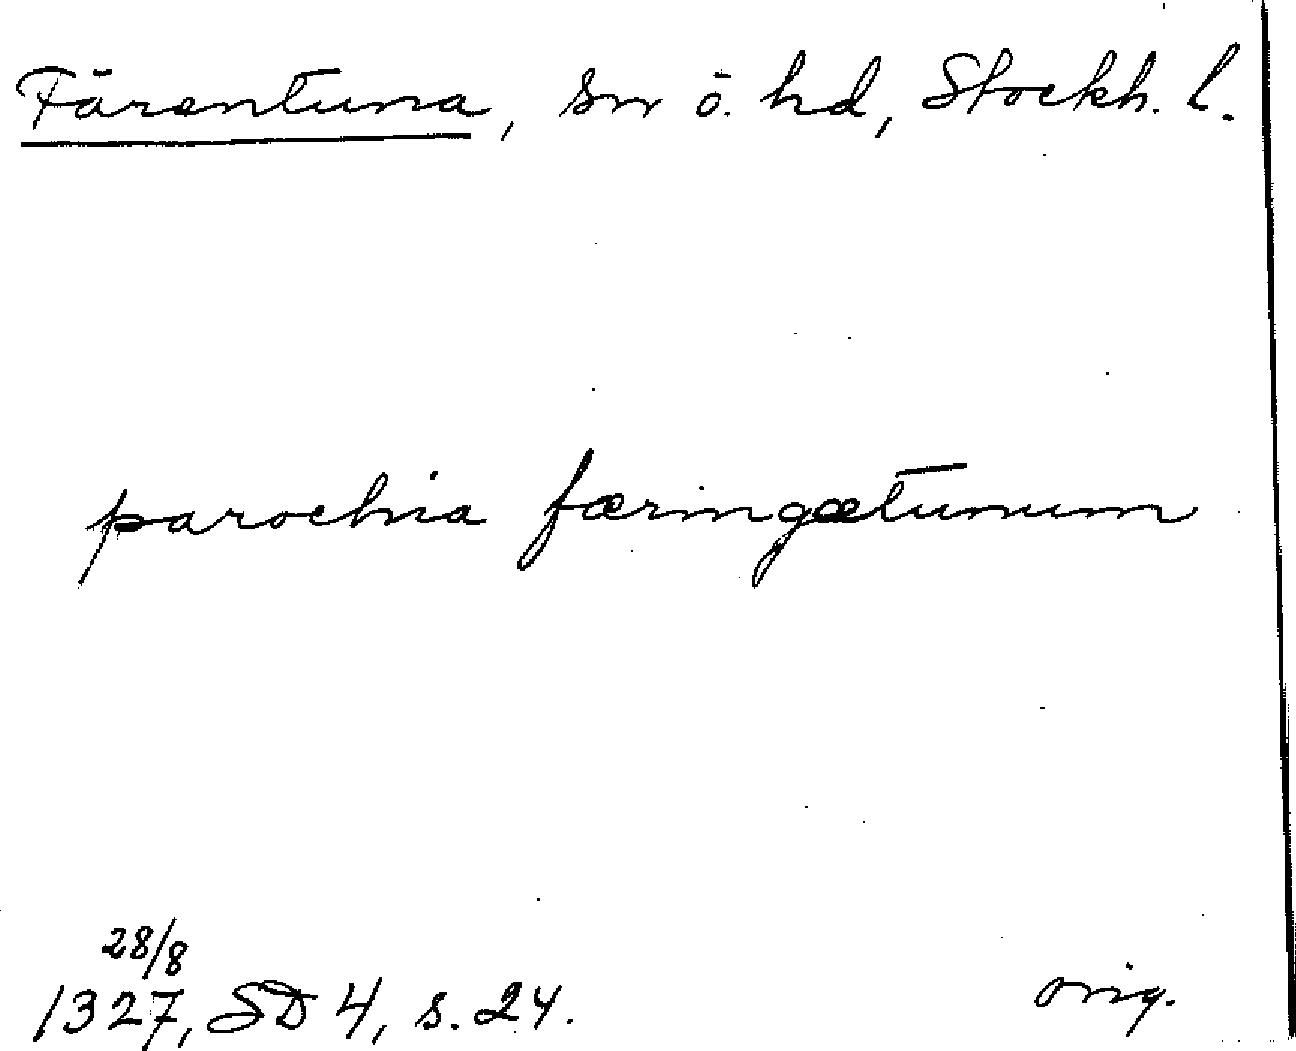 Färentuna, sn o. hd, Stockh. l.
parochia færingætunum
28/8
1327, SD 4, s. 24.
orig.